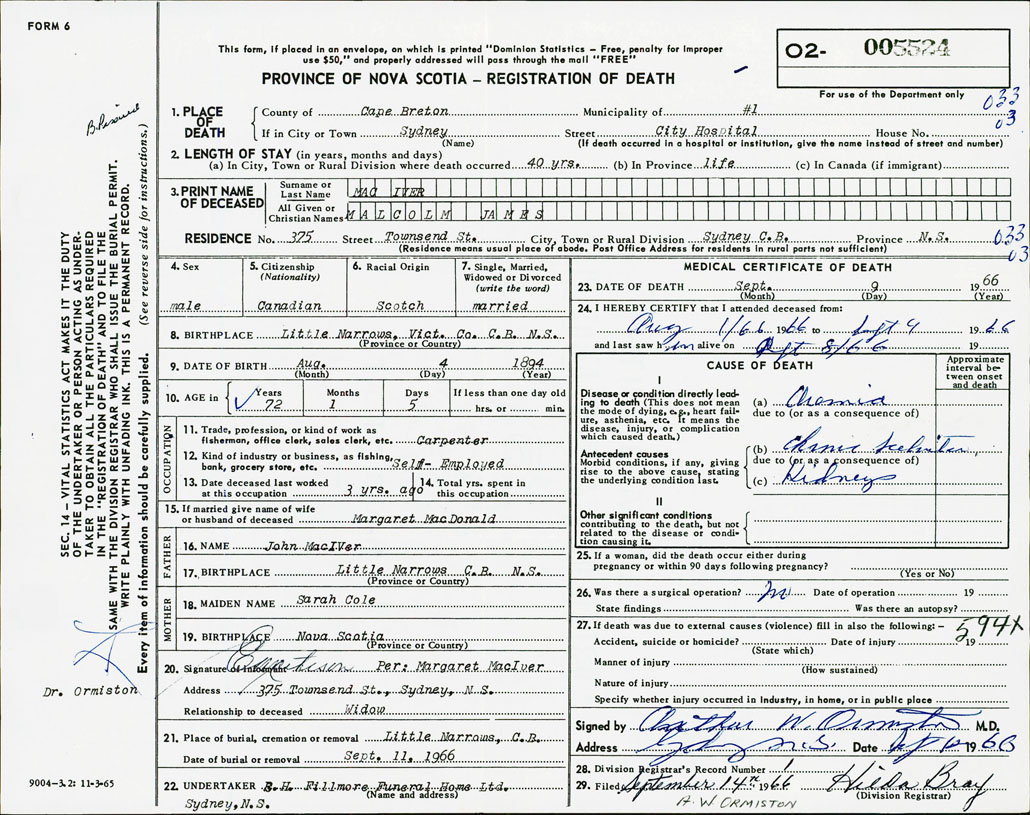 FORM 6
This form, if placed in an envelope, on which is printed "Dominion Statistics – Free, penalty for improper
use $50," and properly addressed will pass through the mail "FREE"
PROVINCE OF NOVA SCOTIA – REGISTRATION OF DEATH
O2- 005524
For use of the Department only
033
03
1. PLACE OF DEATH
County of Cape Breton Municipality of #1
If in City or Town Sydney Street City Hospital House No.
(Name) (If death occurred in a hospital or institution, give the name instead of street and number)
2. LENGTH OF STAY (in years, months and days)
(a) In City, Town or Rural Division where death occurred 40 yrs. (b) In Province life (c) In Canada (if immigrant)
3. PRINT NAME OF DECEASED
Surname or Last Name MAC IVER
All Given or Christian Names MALCOLM JAMES
RESIDENCE No. 375 Street Townsend St. City, Town or Rural Division Sydney C.B. Province N.S.
(Residence means usual place of abode. Post Office Address for residents in rural parts not sufficient)
033
03
4. Sex
male
5. Citizenship (Nationality)
Canadian
6. Racial Origin
Scotch
7. Single, Married, Widowed or Divorced (write the word)
married
8. BIRTHPLACE Little Narrows, Vict. Co. C.B. N.S.
(Province or Country)
9. DATE OF BIRTH Aug. 4 1894
(Month) (Day) (Year)
10. AGE in Years Months Days If less than one day old
72 1 5 hrs. or min.
OCCUPATION
11. Trade, profession, or kind of work as
fisherman, office clerk, sales clerk, etc. Carpenter
12. Kind of industry or business, as fishing,
bank, grocery store, etc. Self- Employed
13. Date deceased last worked
at this occupation 3 yrs. ago
14. Total yrs. spent in
this occupation
15. If married give name of wife
or husband of deceased Margaret MacDonald
FATHER
16. NAME John MacIVer
17. BIRTHPLACE Little Narrows C.B. N.S.
(Province or Country)
MOTHER
18. MAIDEN NAME Sarah Cole
19. BIRTHPLACE Nova Scotia
(Province or Country)
20. Signature of Informant Per: Margaret MacIver
Address 375 Townsend St., Sydney, N.S.
Relationship to deceased Widow
21. Place of burial, cremation or removal Little Narrows, C.B.
Date of burial or removal Sept. 11, 1966
22. UNDERTAKER B.H. Fillmore Funeral Home Ltd.
(Name and address)
Sydney, N.S.
MEDICAL CERTIFICATE OF DEATH
23. DATE OF DEATH Sept. 9 1966
(Month) (Day) (Year)
24. I HEREBY CERTIFY that I attended deceased from:
Aug 1/66 1966 to Sept 9 1966
and last saw him alive on Sept 8/66 19
CAUSE OF DEATH
Approximate interval between onset and death
I
Disease or condition directly leading to death (This does not mean
the mode of dying, e.g., heart failure, asthenia, etc. It means the
disease, injury, or complication
which caused death.)
(a)
due to (or as a consequence of)
Antecedent causes
Morbid conditions, if any, giving
rise to the above cause, stating
the underlying condition last.
(b) Chronic
due to (or as a consequence of)
(c) Kidneys
II
Other significant conditions
contributing to the death, but not
related to the disease or condition causing it.
25. If a woman, did the death occur either during
pregnancy or within 90 days following pregnancy?
(Yes or No)
26. Was there a surgical operation? no Date of operation 19
State findings Was there an autopsy?
27. If death was due to external causes (violence) fill in also the following: –
594X
Accident, suicide or homicide? Date of injury 19
(State which)
Manner of injury
(How sustained)
Nature of injury
Specify whether injury occurred in industry, in home, or in public place
Signed by Arthur W. Ormiston M.D.
Address Sydney N.S. Date Sept 1966
28. Division Registrar's Record Number 1
29. Filed September 14th 1966 Hilda Bray
(Division Registrar)
A. W ORMISTON
SEC. 14 – VITAL STATISTICS ACT MAKES IT THE DUTY
OF THE UNDERTAKER OR PERSON ACTING AS UNDERTAKER TO OBTAIN ALL THE PARTICULARS REQUIRED
IN THE "REGISTRATION OF DEATH" AND TO FILE THE
SAME WITH THE DIVISION REGISTRAR WHO SHALL ISSUE THE BURIAL PERMIT.
WRITE PLAINLY WITH UNFADING INK. THIS IS A PERMANENT RECORD.
Every item of information should be carefully supplied. (See reverse side for instructions.)
Dr. Ormiston
9004-3.2: 11-3-65